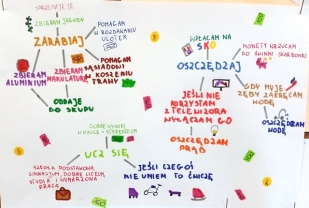 SPRZEDAJĘ
ZBIERAM JAGODY
ZARABIAJ
POMAGAM
W ROZDAWANIU
ULOTEK
ZBIERAM
ALUMINIUM
ZBIERAM
MAKULATURĘ
POMAGAM
SĄSIADOWI
W KOSZENIU
TRAWY
ODDAJĘ
DO SKUPU
WPŁACAM NA
SKO
OSZCZĘDZAJ
MONETY WRZUCAM
DO ŚWINKI SKARBONKI
JEŚLI NIE
KORZYSTAM
Z TELEWIZORA
WYŁĄCZAM GO
OSZCZĘDZAM
PRĄD
GDY MYJĘ
ZĘBY ZAKRĘCAM
WODĘ
OSZCZĘDZAM
WODĘ
DOBRE WYNIKI
W NAUCE = STYPENDIUM
UCZ SIĘ
SZKOŁA PODSTAWOWA
GIMNAZJUM, DOBRE LICEUM,
STUDIA I WYMARZONA
PRACA
JEŚLI CZEGOŚ
NIE UMIEM TO ĆWICZĘ